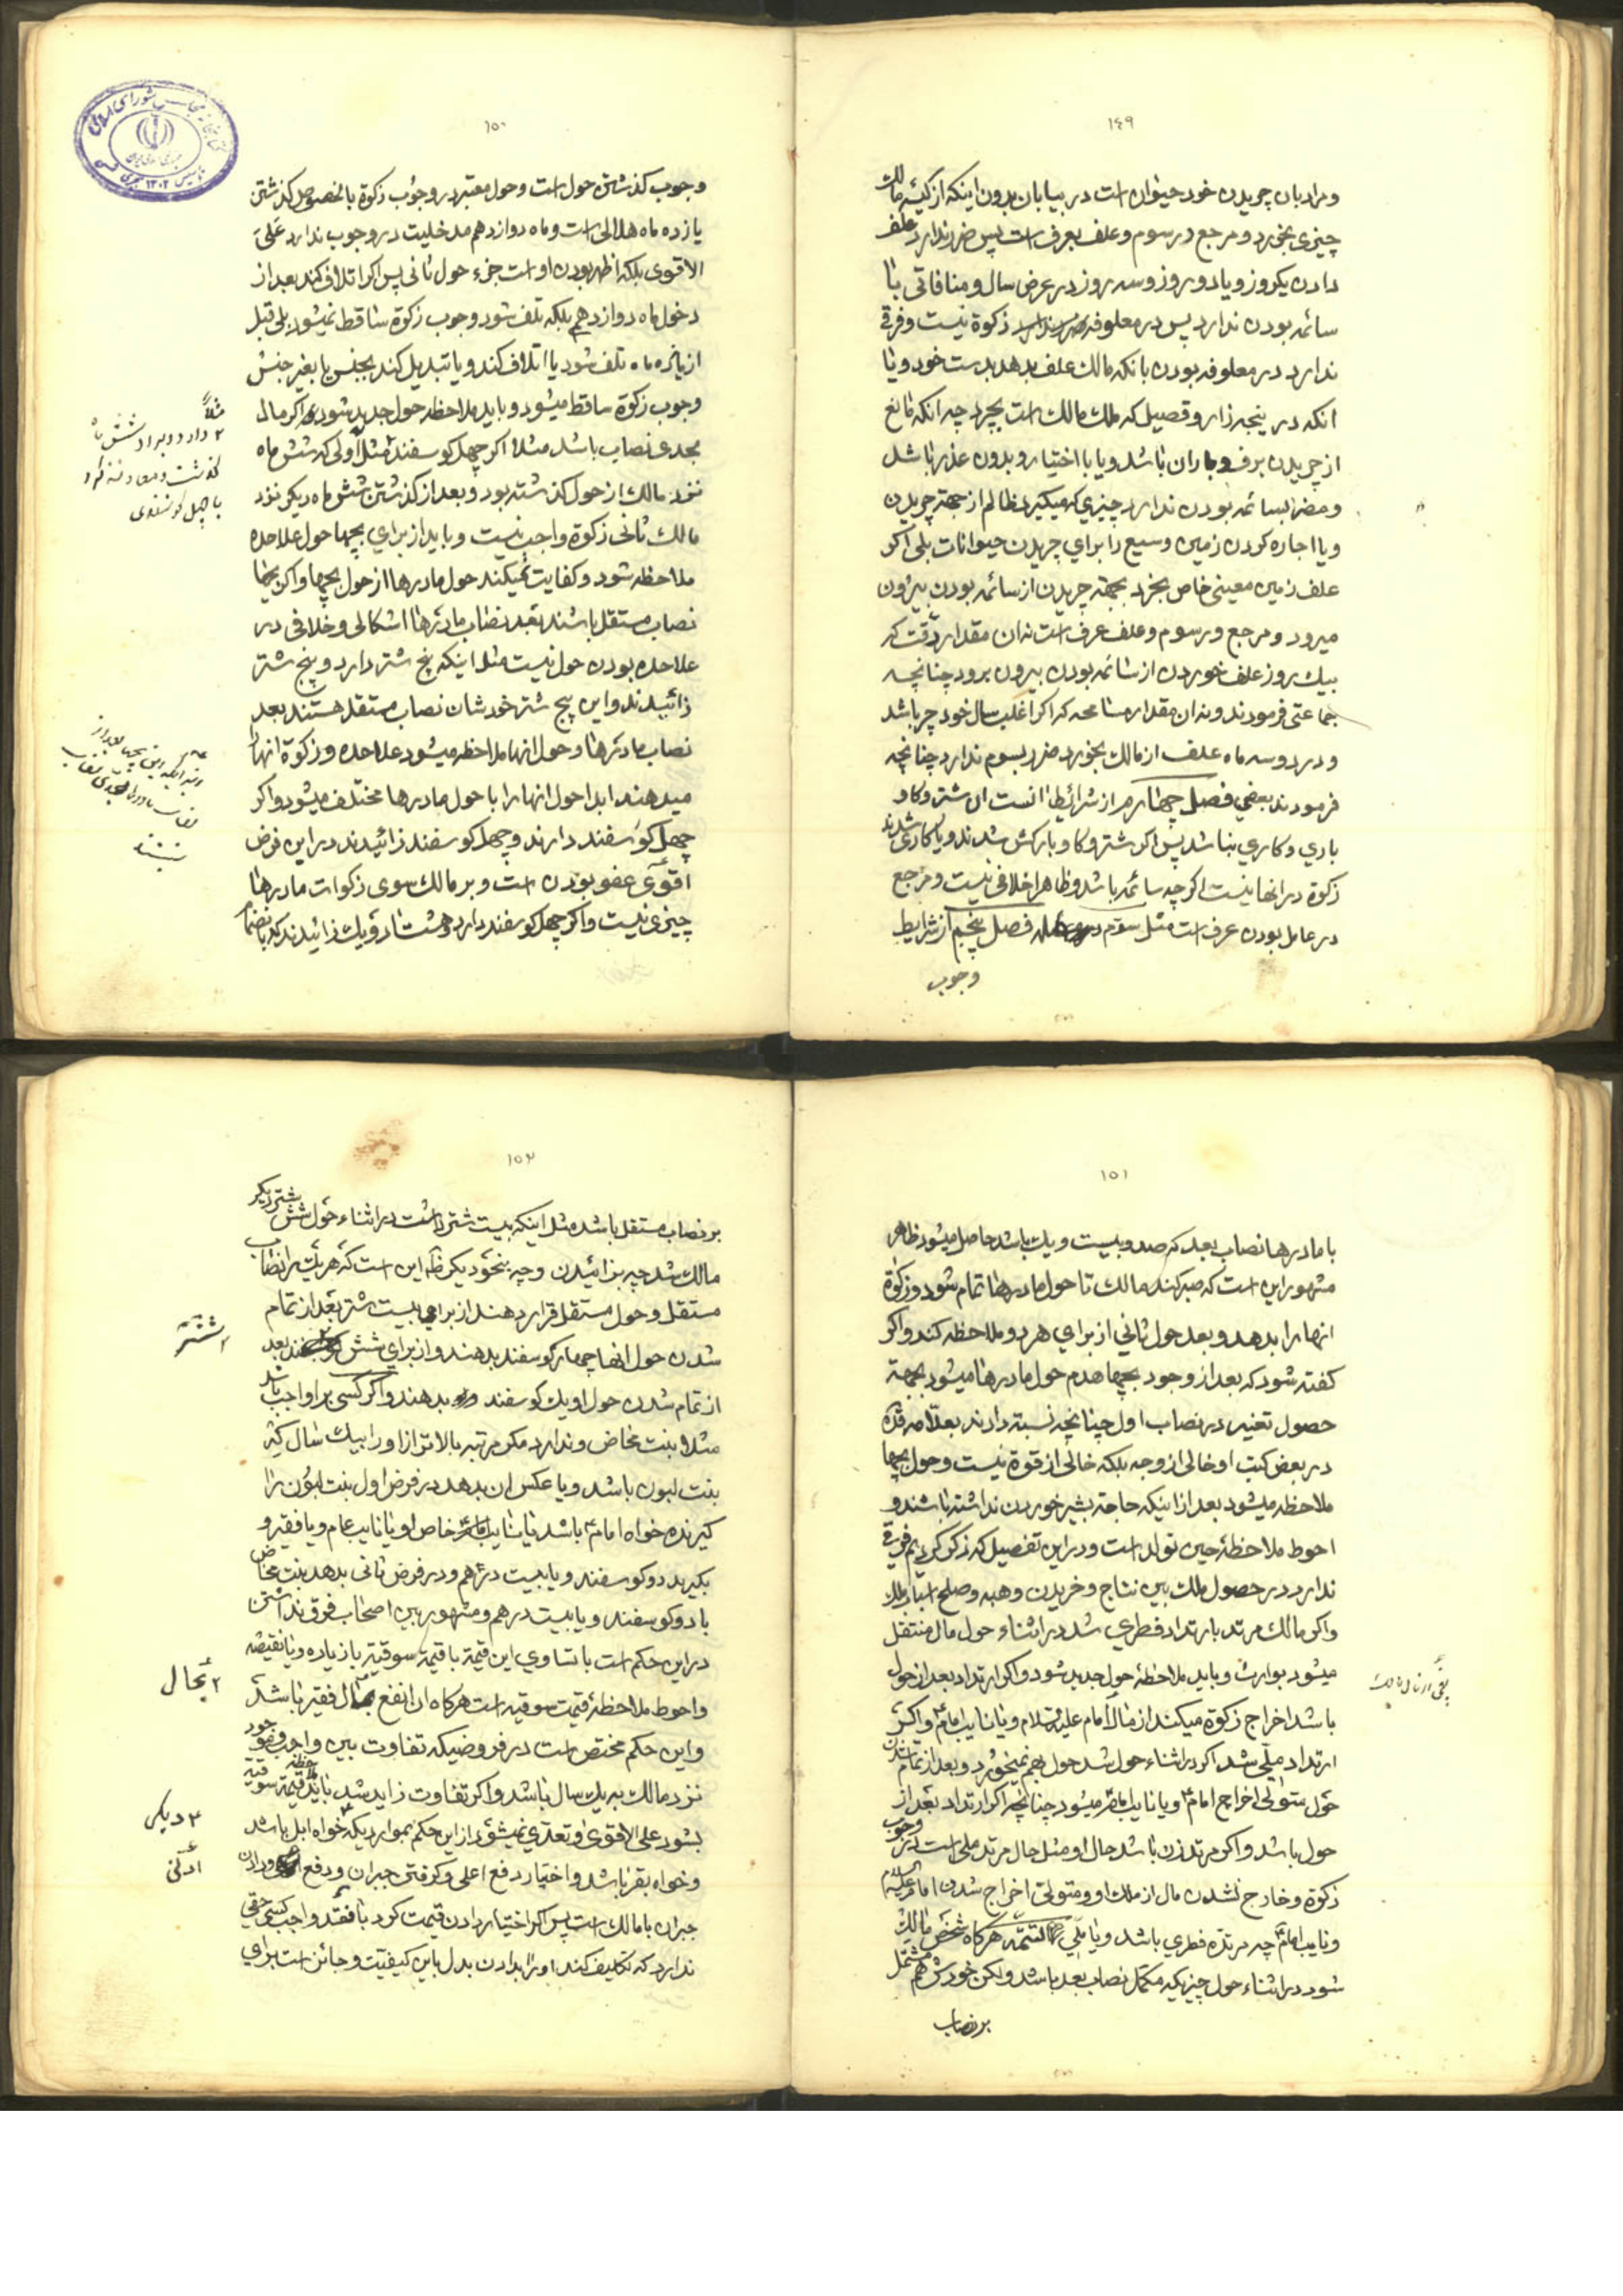 ۱۴۹
ومراد بان چریدن خود حیوان است در بیابان بدون اینکه از کیسهٔ مالك
چیزی بخورد و مرجع در سوم وعلف بعرف است پس ضرر ندارد علف
دادن یکروز و یا دو روز و سه روز در عرض سال و منافاتی با
سائمه بودن ندارد پس در معلوفه زکوة نیست و فرقی
ندارد در معلوفه بودن بانکه مالك علف بدهد بدست خود و یا
انکه در ینجه زار و قصیل که ملك مالك است بچرد چه انکه مانع
از چریدن برف و باران باشد و یا با اختیار و بدون عذر باشد
ومضر بسائمه بودن ندارد چیزی که میگیرد ظالم از جهة چریدن
و یا اجاره کردن زمین وسیع را برای چریدن حیوانات بلی اکر
علف زمین معینی خاص بخرد بجهة چریدن از سائمه بودن بیرون
میرود و مرجع در سوم وعلف عرف است نه ان مقدار دقت که
بیك روز علف خوردن از سائمه بودن بیرون برود چنانچه
جماعتی فرمودند و نه ان مقدار مسامحه که اکر اغلب سال خود چر باشد
و در دو سه ماه علف از مالك بخورد ضرر بسوم ندارد چنانچه
فرمودند بعضی فصل چهارم از شرائط انست ان شتر و کاو
باری و کاری نباشد پس اکر شتر و کاو بارکش شدند و یا کاری شدند
زکوة در انها نیست اکر چه سائمه باشد وظاهرا خلافی نیست و مرجع
در عامل بودن عرف است مثل سوم فصل پنجم از شرایط
وجوب
۱۵۰
وجوب کذشتن حول است وحول معتبر در وجوب زکوة بالخصوص کذشتن
یازده ماه هلالی است و ماه دوازدهم مدخلیت در وجوب ندارد علی
الاقوی بلکه اظهر بودن او است جزء حول ثانی پس اکر اتلاف کند بعد از
دخول ماه دوازدهم بلکه تلف شود وجوب زکوة ساقط نمیشود بلی قبل
از یازده ماه تلف شود یا اتلاف کند و یا تبدیل کند بجنس یا بغیر جنس
وجوب زکوة ساقط میشود و باید ملاحظه حول جدید شود اکر مال
بحد نصاب باشد مثلا اکر چهل کوسفند مثلا اولی که شش ماه
نزد مالك از حول کذشته بود و بعد از کذشتن شش ماه دیکر نزد
مالك ثانی زکوة واجب نیست و باید از برای بچها حول علاحده
ملاحظه شود و کفایت نمیکند حول مادرها از حول بچها واکر بچها
نصاب مستقل باشند بعد نصاب مادرها اشکالی و خلافی در
علاحده بودن حول نیست مثل اینکه پنج شتر دارد و پنج شتر
زائیدند و این پنج شتر خودشان نصاب مستقل هستند بعد
نصاب مادرها و حول انها ملاحظه میشود علاحده و زکوة انها
میدهند ابدا حول انها را با حول مادرها مختلف میشود و اکر
چهل کوسفند دارند و چهل کوسفند زائیدند در این فرض
اقوی عفو بودن است و بر مالك سوی زکوات مادرها
چیزی نیست واکر چهل کوسفند دارد و هشتاد و یك زائیدند که بانضمام
مثلاً
۲ دارد و بر او شش ماه
کذشت و معاوضه کرد
با چهل کوسفندی
بعد از
نصاب
نیستند
۱۵۱
با مادرها نصاب بعد که صد و بیست و یك باشد حاصل میشود ظاهر
مشهور این است که صبر کند مالك تا حول مادرها تمام شود و زکوة
انها را بدهد و بعد حول ثانی از برای هر دو ملاحظه کند واکر
کفته شود که بعد از وجود بچها هدم حول مادرها میشود بجهة
حصول تغییر در نصاب اول چنانچه نسبة دادند بعلامه قده
در بعض کتب او خالی از وجه بلکه خالی از قوة نیست وحول بچها
ملاحظه میشود بعد از اینکه حاجة بشیر خوردن نداشته باشند و
احوط ملاحظهٔ حین تولد است و در این تفصیل که ذکر کردیم فرقی
ندارد در حصول ملك بین نتاج و خریدن و هبه وصلح
واکر مالك مرتد بارتداد فطری شد در اثناء حول مال منتقل
میشود بوارث و باید ملاحظهٔ حول جدید شود واکر ارتداد بعد از حول
باشد اخراج زکوة میکند از مال امام علیه السلام و یا نایب امام واکر
ارتداد ملی شد اکر در اثناء حول شد حول بهم نمیخورد و بعد از تمام شدن
حول متولی اخراج امام و یا نایب امام میشود چنانچه اکر ارتداد بعد از
حول باشد واکر مرتد زن باشد حال او مثل حال مرتد ملی است در وجوب
زکوة و خارج نشدن مال از ملك او و متولی اخراج شدن امام علیه السلام
و نایب امام چه مرتده فطری باشد و یا ملی تتمه هرکاه شخص مالك
شود در اثناء حول چیزیکه مکمل نصاب بعد باشد ولکن خودش هم مشتمل
بر نصاب
۱۵۲
بر نصاب مستقل باشد مثل اینکه بیست شتر داشت در اثناء حول شش شتر دیکر
مالك شد چه بزائیدن و چه بنحو دیکر ظاهر این است که هر یك را نصاب
مستقل وحول مستقل قرار دهند از برای بیست شتر بعد از تمام
شدن حول انها چهار کوسفند بدهند و از برای شش بعد
از تمام شدن حول او یك کوسفند بدهند و اکر کسی بر او واجب باشد
مثلا بنت مخاض و ندارد مکر مرتبه بالاتر از او را بیك سال که
بنت لبون باشد و یا عکس ان بدهد در فرض اول بنت لبون را
کیرنده خواه امام باشد یا نایب امام خاص او یا نایب عام و یا فقیر و
بکیرد دو کوسفند و یا بیست درهم و در فرض ثانی بدهد بنت مخاض
با دو کوسفند و یا بیست درهم و مشهور بین اصحاب فرق نداشتن
در این حکم است با تساوی این قیمة با قیمة سوقیة یا زیاده و یا نقیصه
واحوط ملاحظهٔ قیمت سوقیه است هرکاه ان انفع بحال فقیر باشد
واین حکم مختص است در فروضیکه تفاوت بین واجب و موجود
نزد مالك به یك سال باشد واکر تفاوت زاید شد باید ملاحظه قیمة سوقیة
بشود علی الاقوی و تعدی نمیشود از این حکم بموارد دیکر خواه ابل باشد
وخواه بقر باشد واختیار دفع اعلی و کرفتن جبران و دفع ودادن
جبران با مالك است پس اکر اختیار دادن قیمت کرد با فقد واجب کسی حقی
ندارد که تکلیف کند او را بدادن بدل باین کیفیت وجائز است برای
۱ شتر
۲ بحال
۳ دیکر
ادنی